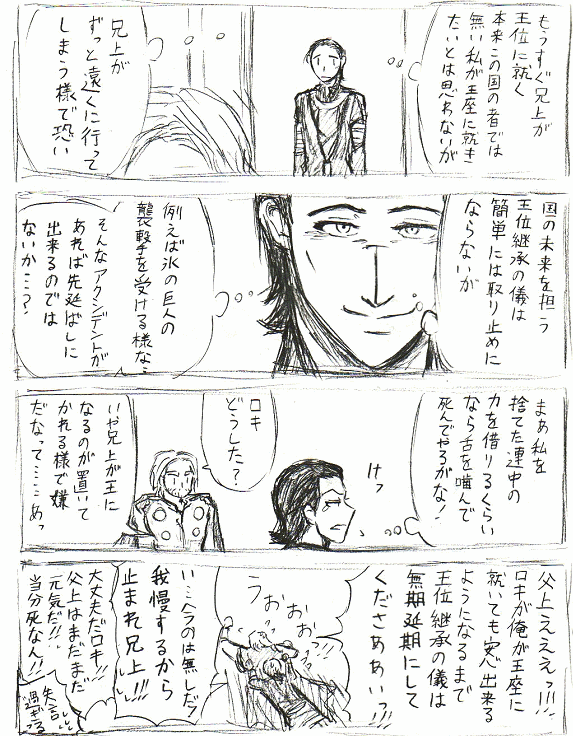 もうすぐ兄上が
王位に就く
本来この国の者では
無い私が王座に就き
たいとは思わないが
兄上が
ずっと遠くに行って
しまう様で恐い
国の未来を担う
王位継承の儀は
簡単には取り止めに
ならないが
例えば氷の巨人の
襲撃を受ける様な…
そんなアクシデントが
あれば先延ばしに
出来るのでは
ないか…?
まあ私を
捨てた連中の
力を借りるくらい
なら舌を噛んで
死んでやるがな!
けっ
ロキ
どうした?
いや兄上が王に
なるのが置いて
かれる様で嫌
だなって……あっ
父上えええっ!!!
ロキが俺が王座に
就いても安心出来る
ようになるまで
王位継承の儀は
無期延期にして
くださあぁいっ!!
うおぉおぉ
い…今のは無しだ!
我慢するから
止まれ兄上!!!
大丈夫だロキ!!
父上はまだまだ
元気だ!!
当分死なん!!
失言
過ぎる